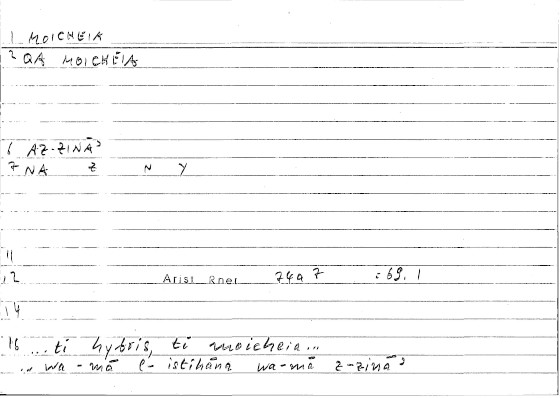 1 MOICHEIA
2 QA MOICHĒIA
6 AZ-ZINĀʾ
7 NA Z N Y
11
12 Arist Rhet 74a7 :69.1
14
16 ...ti hybris, ti moicheia...
... wa-mā l-istihāna wa-mā z-zināʾ